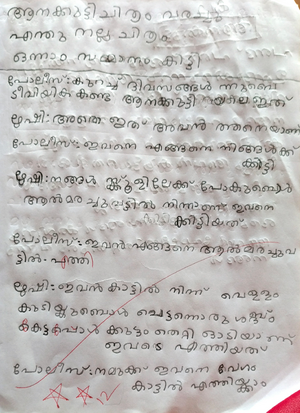 ആനക്കുട്ടി ചിത്രം വരച്ചു
എന്തു നല്ല ചിത്രം
ഒന്നാം സമ്മാനം കിട്ടി
പോലീസ്: കുറച്ച് ദിവസങ്ങൾ മുമ്പെ
ടീവിയിൽ കണ്ട ആനക്കുട്ടി യല്ലെ ഇത്
ഋഷി: അതെ ഇത് അവൻ തന്നെയാണ്
പോലീസ്: ഇവനെ എങ്ങനെ നിങ്ങൾക്ക്
കിട്ടി
ഋഷി: ഞങ്ങൾ സ്കൂളിലേക്ക് പോകുമ്പോൾ
ആൽമര ച്ചുവട്ടിൽ നിന്നാണ് ഇവനെ
കിട്ടിയത്
പോലീസ്: ഇവൻ എങ്ങനെ ആൽമരച്ചുവ
ട്ടിൽ എത്തി
ഋഷി: ഇവൻ കാട്ടിൽ നിന്ന് വെള്ളം
കുടിയ്ക്കുമ്പോൾ പെട്ടന്നൊരു ശബ്ദം
കേട്ടപ്പോൾ കൂട്ടം തെറ്റി ഓടിയാണ്
ഇവിടെ എത്തിയത്
പോലീസ്: നമുക്ക് ഇവനെ വേഗം
കാട്ടിൽ എത്തിയ്ക്കാം